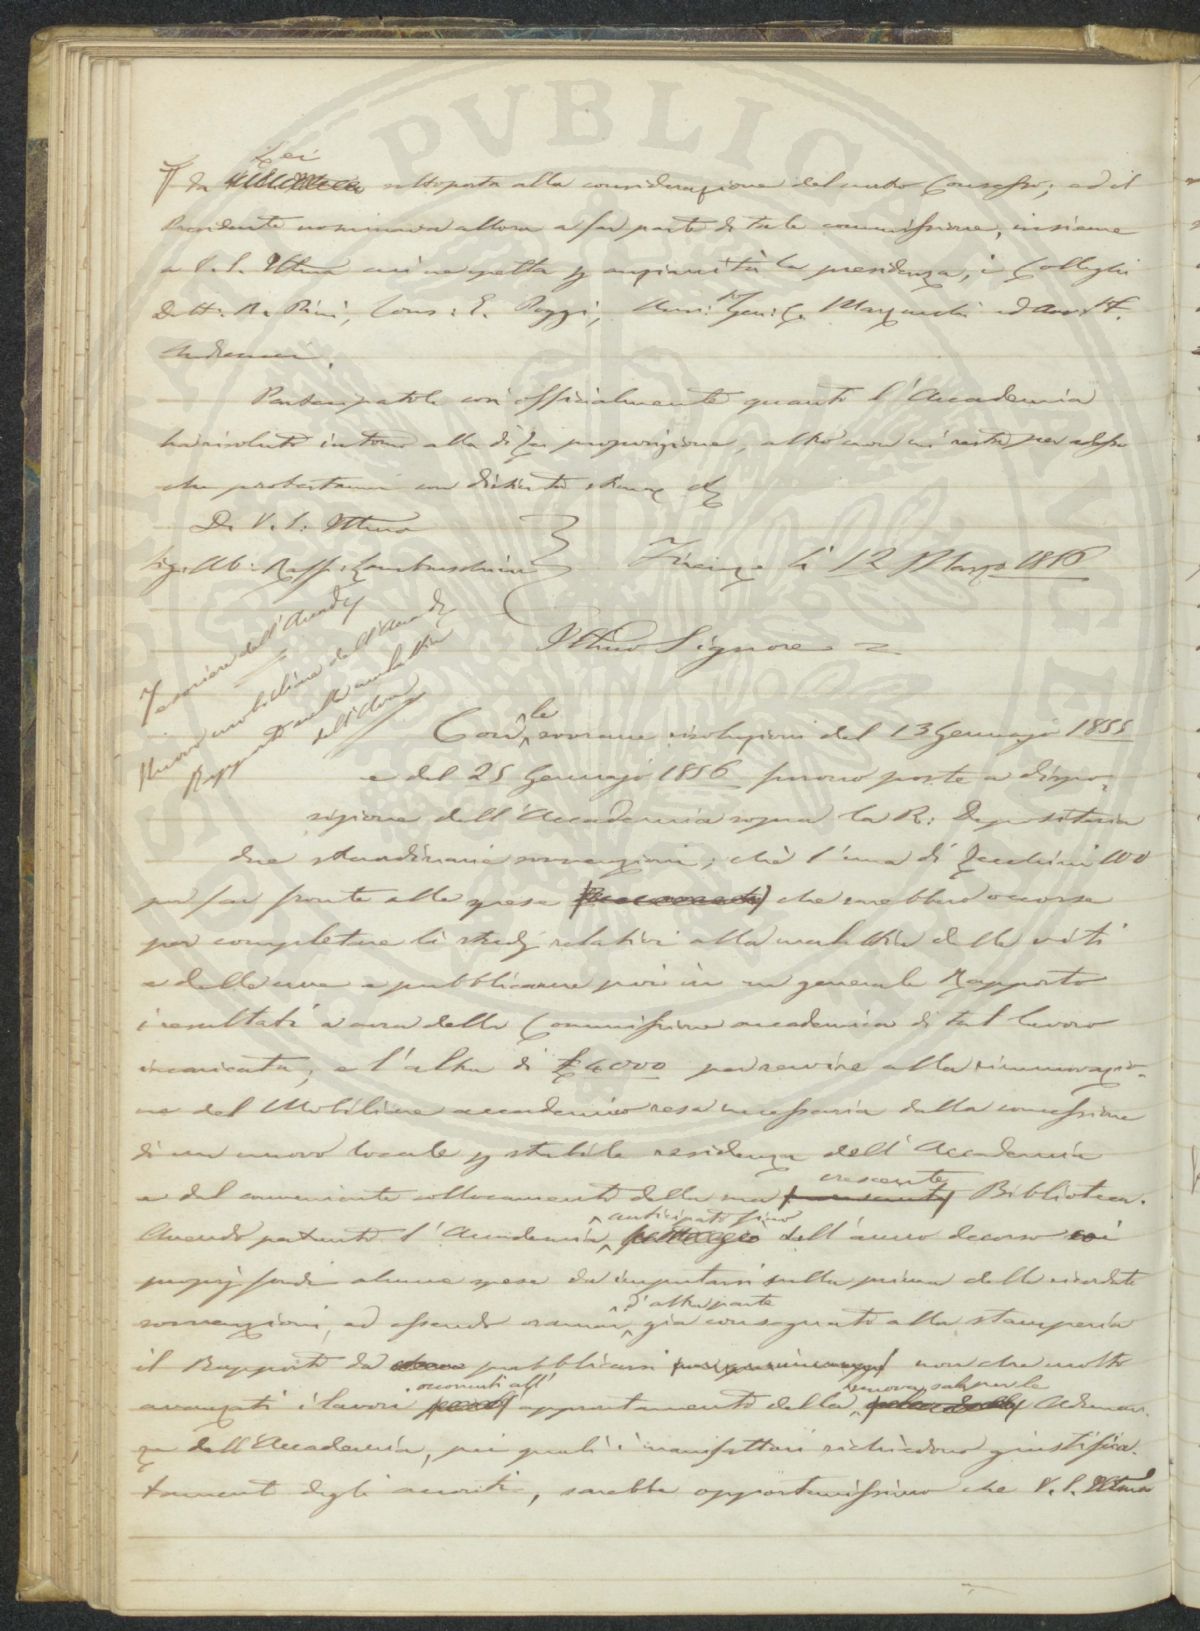 Lei
da sottoposta alla considerazione del nostro Consesso; ed il
Presidente nominava allora a far parte di tale commissione, insieme
a V. S. Illma cui ne spetta p anzianità la presidenza, i Colleghi
Dott. A. Pini, Cons: E. Poggi, C. Marzucchi ed Avv.
Andreucci.
Partecipatole così officialmente quanto l'Accademia
ha risoluto intorno alla di Lei proposizione, altro non mi resta per adesso
che protestarmi con distinta stima
Di V. S. Illma
Sig. Ab: Raff: Lambruschini
Firenze li 12 Marzo 1856
Tesoriere dell'Accad
Nuovo mobiliare dell'Accad
Rapporto sulla malattia
dell'Uva
Illmo Signore
Con le sovrane risoluzioni del 13 Gennajo 1855
e del 25 Gennajo 1856 furono poste a dispo-
sizione dell'Accademia sopra la R: Depositeria
due straordinarie sovvenzioni; cioè l'una di Zecchini 100
per far fronte alle spese che sarebbero occorse
per completare li studj relativi alla malattia delle viti
e delle uve e pubblicarne poi in un generale Rapporto
i resultati a cura della Commissione accademica di tal lavoro
incaricata; e l'altra di £ 4000 per servire alla rinnovazio-
ne del Mobiliare accademico resa necessaria dalla concessione
di un nuovo locale p stabile residenza dell'Accademia
e dal conveniente collocamento della sua crescente Biblioteca.
Avendo pertanto l'Accademia anticipato fino dall'anno decorso coi
proprj fondi alcune spese da imputarsi sulla prima delle ricordate
sovvenzioni, ed essendo oramai d'altra parte già consegnato alla stamperia
il Rapporto da pubblicarsi non che molto
avanzati i lavori occorrenti all' appuntamento della nuova sala per le Adunan-
ze dell'Accademia, pei quali i manifattori richiedono giustifica-
tamente degli acconti, sarebbe opportunissimo che V. S. Illma